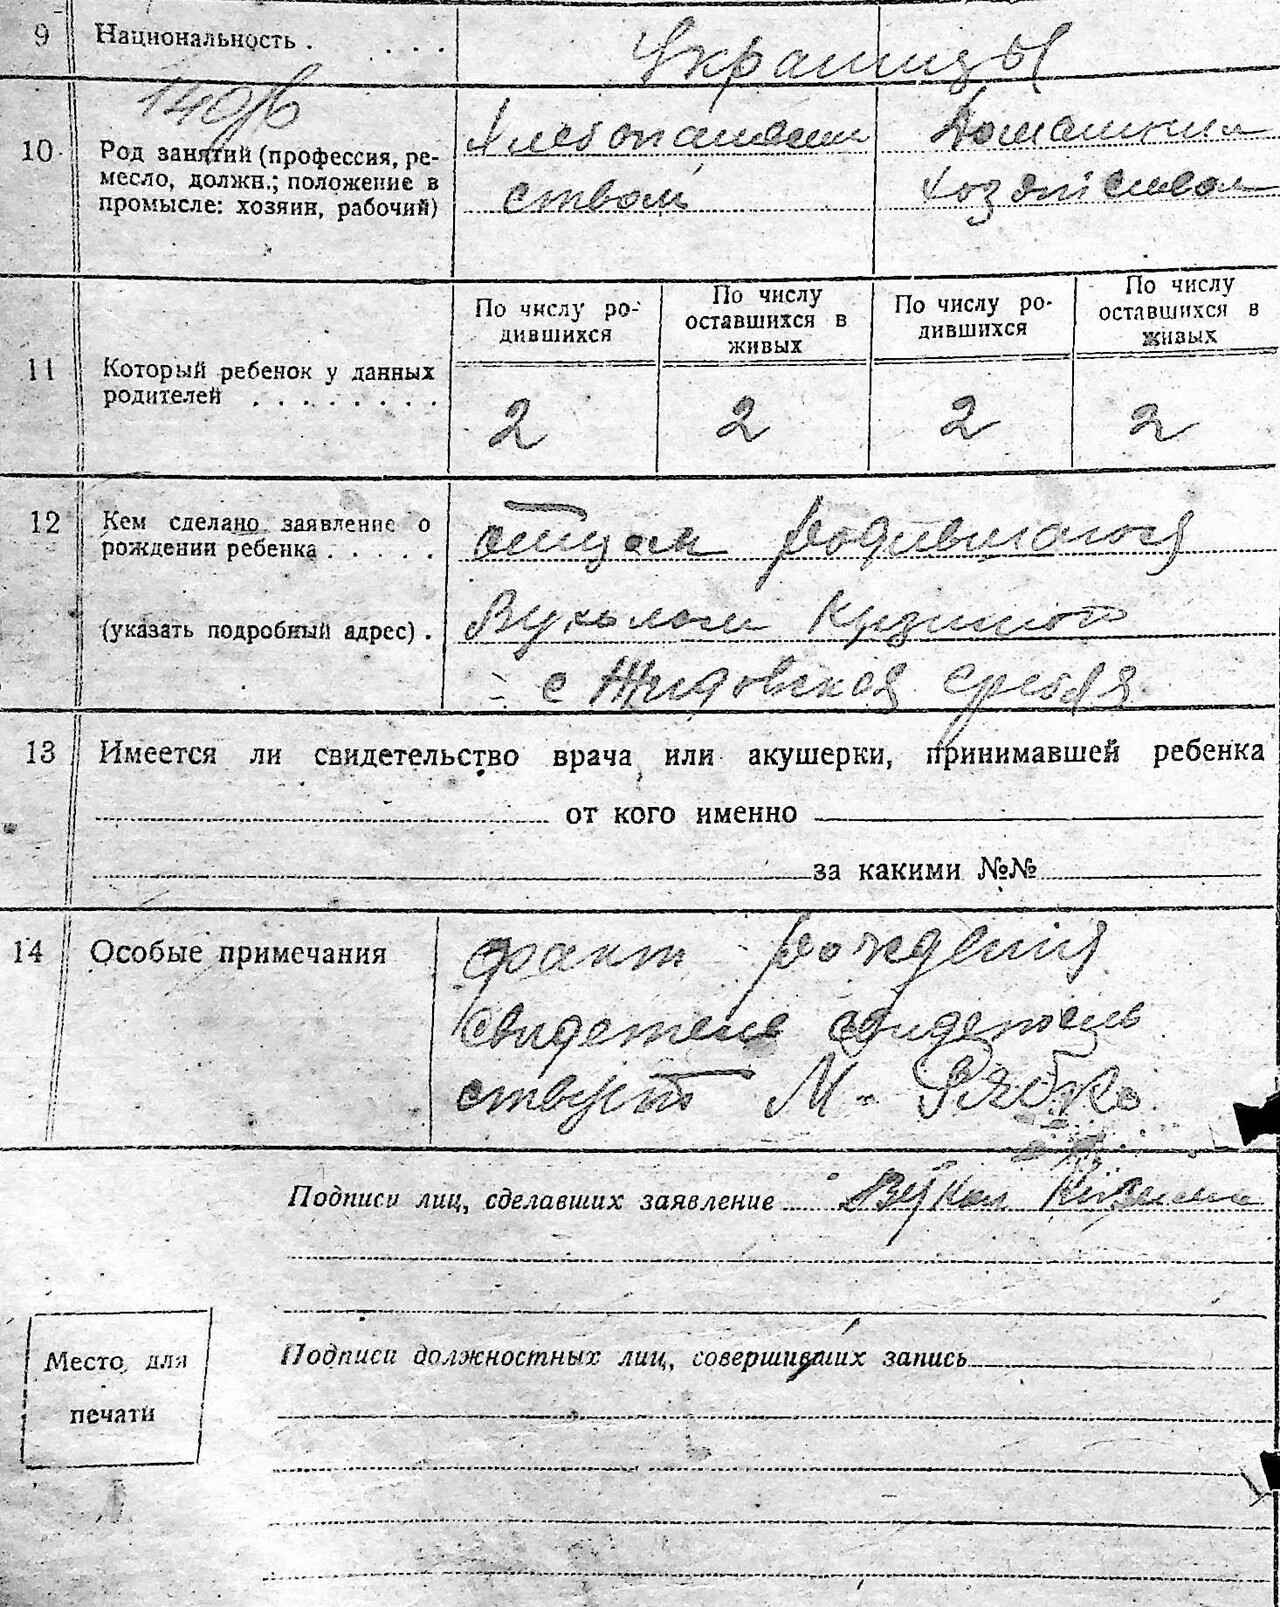 9 Национальность . . . . Украинцы
149/6
10 Род занятий (профессия, ре-
месло, должн.; положение в
промысле: хозяин, рабочий)
Хлебопашеским
ством
Домашним
хозяйством
11 Который ребенок у данных
родителей . . . . . . . .
По числу ро-
дившихся
По числу
оставшихся в
живых
По числу ро-
дившихся
По числу
оставшихся в
живых
2 2 2 2
12 Кем сделано заявление о
рождении ребенка . . . . .
(указать подробный адрес) .
отцом родившагося
Вуколом
с Жидовская гребля
13 Имеется ли свидетельство врача или акушерки, принимавшей ребенка
от кого именно
за какими №№
14 Особые примечания
факт рождения
свидетель свидетель
ствует М. Рябко
Подписи лиц, сделавших заявление Вукол
Подписи должностных лиц, совершивших запись
Место для
печати